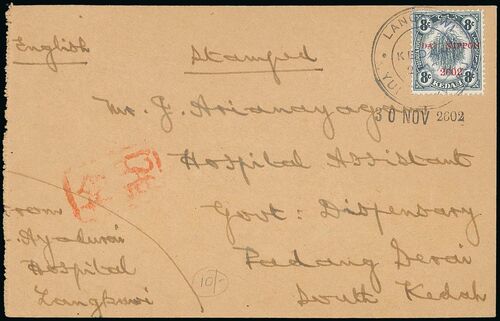 English
Stamped
LANG
KED
YU
8c
8c
DAI NIPPON
2602
8c
8c
KEDAH
30 NOV 2602
Mr. J. Arianayagam
Hospital Assistant
Govt: Dispensary
Padang Serai
South Kedah
From
Ayadurai
Hospital
Langkawi
10/-